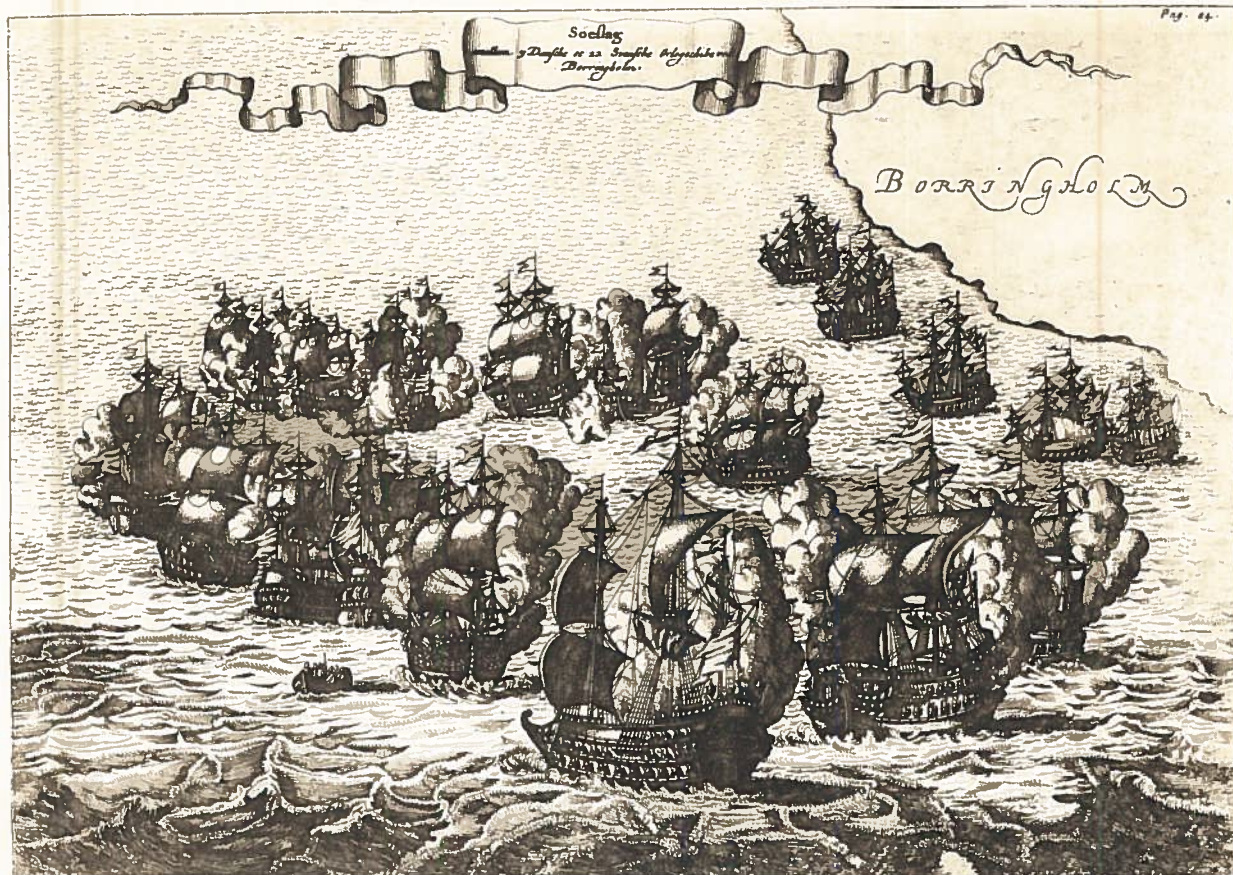 Pag. 84.
Söeslag
9 Danske oc 22 Svenske Orlogsskibe
Borringholm.
BORRINGHOLM